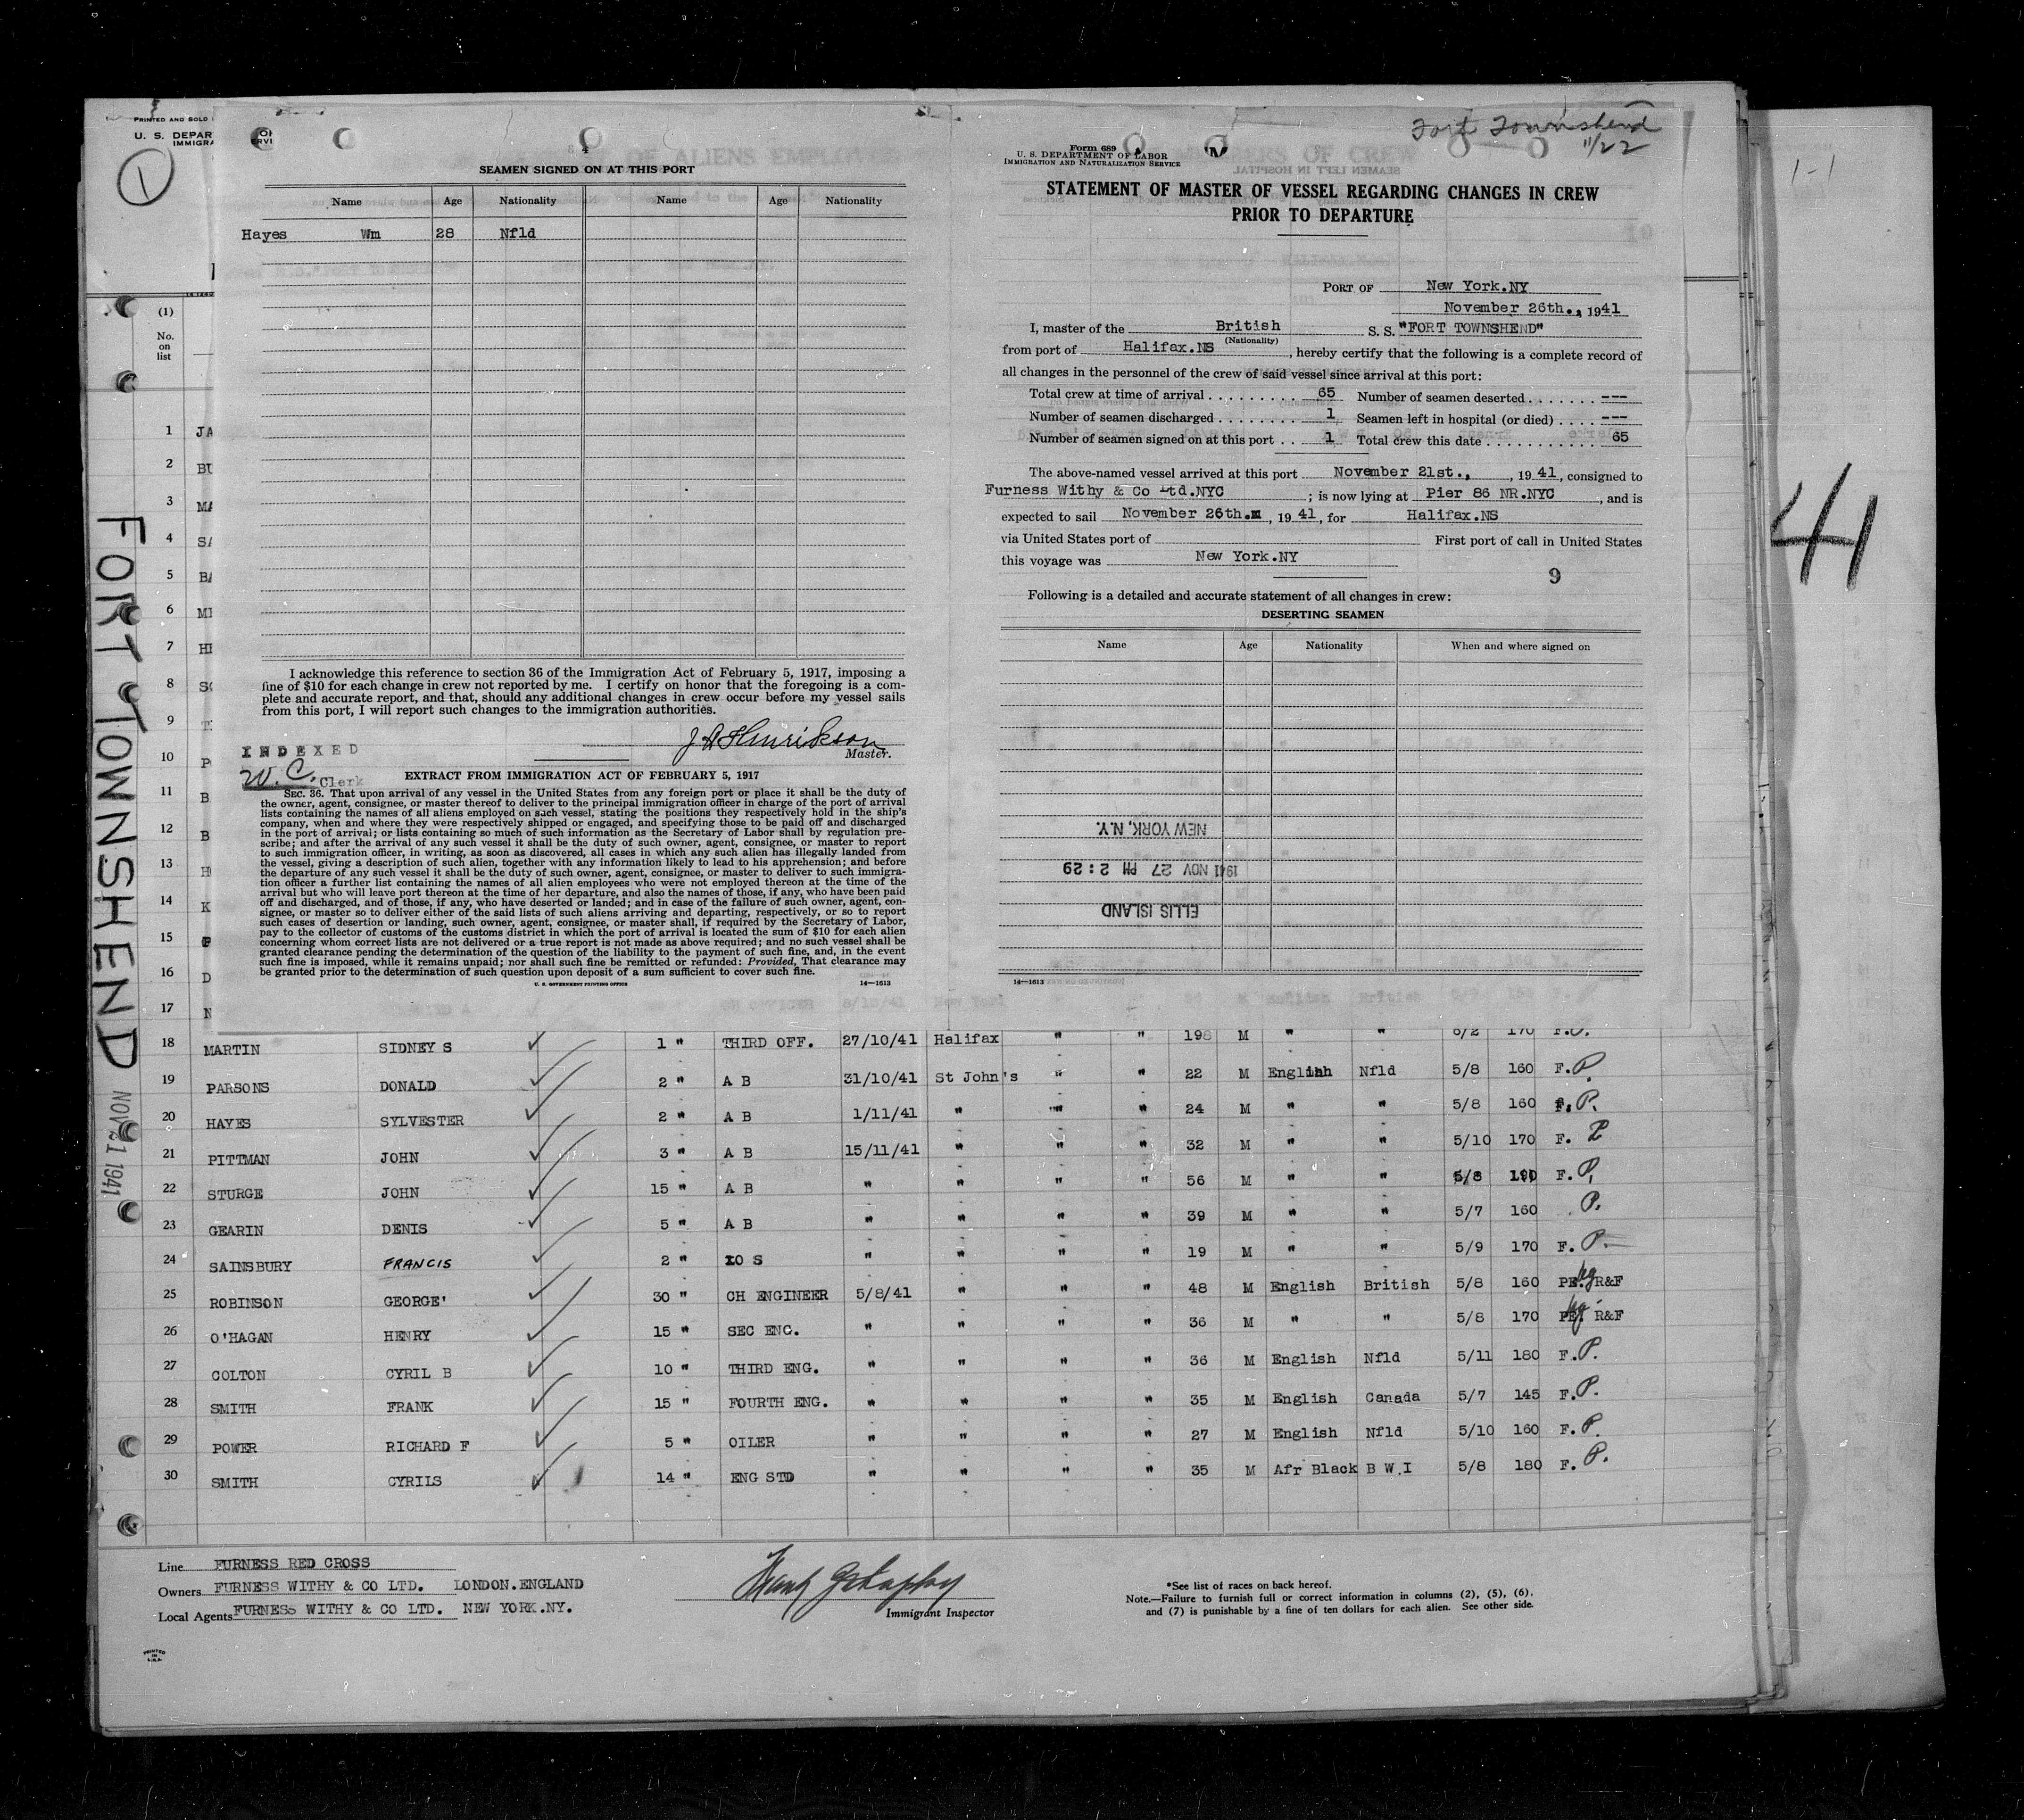 Fort Townshend
11/22
PRINTED AND SOLD
U. S. DEPAR
IMMIGRA
1
4
SEAMEN SIGNED ON AT THIS PORT
Name Age Nationality Name Age Nationality
Hayes Wm 28 Nfld
I acknowledge this reference to section 36 of the Immigration Act of February 5, 1917, imposing a
fine of $10 for each change in crew not reported by me. I certify on honor that the foregoing is a com-
plete and accurate report, and that, should any additional changes in crew occur before my vessel sails
from this port, I will report such changes to the immigration authorities.
Master.
INDEXED
W. C. Clerk
EXTRACT FROM IMMIGRATION ACT OF FEBRUARY 5, 1917
SEC. 36. That upon arrival of any vessel in the United States from any foreign port or place it shall be the duty of
the owner, agent, consignee, or master thereof to deliver to the principal immigration officer in charge of the port of arrival
lists containing the names of all aliens employed on such vessel, stating the positions they respectively hold in the ship's
company, when and where they were respectively shipped or engaged, and specifying those to be paid off and discharged
in the port of arrival; or lists containing so much of such information as the Secretary of Labor shall by regulation pre-
scribe; and after the arrival of any such vessel it shall be the duty of such owner, agent, consignee, or master to report
to such immigration officer, in writing, as soon as discovered, all cases in which any such alien has illegally landed from
the vessel, giving a description of such alien, together with any information likely to lead to his apprehension; and before
the departure of any such vessel it shall be the duty of such owner, agent, consignee, or master to deliver to such immigra-
tion officer a further list containing the names of all alien employees who were not employed thereon at the time of the
arrival but who will leave port thereon at the time of her departure, and also the names of those, if any, who have been paid
off and discharged, and of those, if any, who have deserted or landed; and in case of the failure of such owner, agent, con-
signee, or master so to deliver either of the said lists of such aliens arriving and departing, respectively, or so to report
such cases of desertion or landing, such owner, agent, consignee, or master shall, if required by the Secretary of Labor,
pay to the collector of customs of the customs district in which the port of arrival is located the sum of $10 for each alien
concerning whom correct lists are not delivered or a true report is not made as above required; and no such vessel shall be
granted clearance pending the determination of the question of the liability to the payment of such fine, and, in the event
such fine is imposed, while it remains unpaid; nor shall such fine be remitted or refunded: Provided, That clearance may
be granted prior to the determination of such question upon deposit of a sum sufficient to cover such fine.
U. S. GOVERNMENT PRINTING OFFICE 14—1613
Form 689
U. S. DEPARTMENT OF LABOR
IMMIGRATION AND NATURALIZATION SERVICE
STATEMENT OF MASTER OF VESSEL REGARDING CHANGES IN CREW
PRIOR TO DEPARTURE
PORT OF New York.NY
November 26th., 1941
I, master of the British S. S. "FORT TOWNSHEND"
(Nationality)
from port of Halifax.NS, hereby certify that the following is a complete record of
all changes in the personnel of the crew of said vessel since arrival at this port:
Total crew at time of arrival 65 Number of seamen deserted ---
Number of seamen discharged 1 Seamen left in hospital (or died) ---
Number of seamen signed on at this port 1 Total crew this date 65
The above-named vessel arrived at this port November 21st., 1941, consigned to
Furness Withy & Co Ltd.NYC; is now lying at Pier 86 NR.NYC, and is
expected to sail November 26th., 1941, for Halifax.NS
via United States port of First port of call in United States
this voyage was New York.NY
9
Following is a detailed and accurate statement of all changes in crew:
DESERTING SEAMEN
Name Age Nationality When and where signed on
NEW YORK, N.Y.
1941 NOV 27 PM 2:29
ELLIS ISLAND
14—1613
(1)
No.
on
list
1 JA
2 BU
3 MA
4 SA
5 BA
6 MI
7 HI
8 SC
9
10 P
11 B
12 B
13 H
14 K
15
16 D
17 N
18 MARTIN SIDNEY S 1 " THIRD OFF. 27/10/41 Halifax " " 198 M " " 6/2 170 F.P.
19 PARSONS DONALD 2 " A B 31/10/41 St John's " " 22 M English Nfld 5/8 160 F.P.
20 HAYES SYLVESTER 2 " A B 1/11/41 " " " 24 M " " 5/8 160 F.P.
21 PITTMAN JOHN 3 " A B 15/11/41 " " " 32 M " " 5/10 170 F. P
22 STURGE JOHN 15 " A B " " " " 56 M " " 5/8 190 F.P.
23 GEARIN DENIS 5 " A B " " " " 39 M " " 5/7 160 P.
24 SAINSBURY FRANCIS 2 " O S " " " " 19 M " " 5/9 170 F. P.
25 ROBINSON GEORGE' 30 " CH ENGINEER 5/8/41 " " " 48 M English British 5/8 160 R&F
26 O'HAGAN HENRY 15 " SEC ENG. " " " " 36 M " " 5/8 170 R&F
27 COLTON CYRIL B 10 " THIRD ENG. " " " " 36 M English Nfld 5/11 180 F.P.
28 SMITH FRANK 15 " FOURTH ENG. " " " " 35 M English Canada 5/7 145 F.P.
29 POWER RICHARD F 5 " OILER " " " " 27 M English Nfld 5/10 160 F.P.
30 SMITH CYRILS 14 " ENG STD " " " " 35 M Afr Black B W.I 5/8 180 F. P.
Line FURNESS RED CROSS
Owners FURNESS WITHY & CO LTD. LONDON.ENGLAND
Local Agents FURNESS WITHY & CO LTD. NEW YORK.NY.
Immigrant Inspector
*See list of races on back hereof.
Note.—Failure to furnish full or correct information in columns (2), (5), (6),
and (7) is punishable by a fine of ten dollars for each alien. See other side.
PRINTED
IN
U.S.A.
FORT TOWNSHEND NOV 21 1941
1-1
41